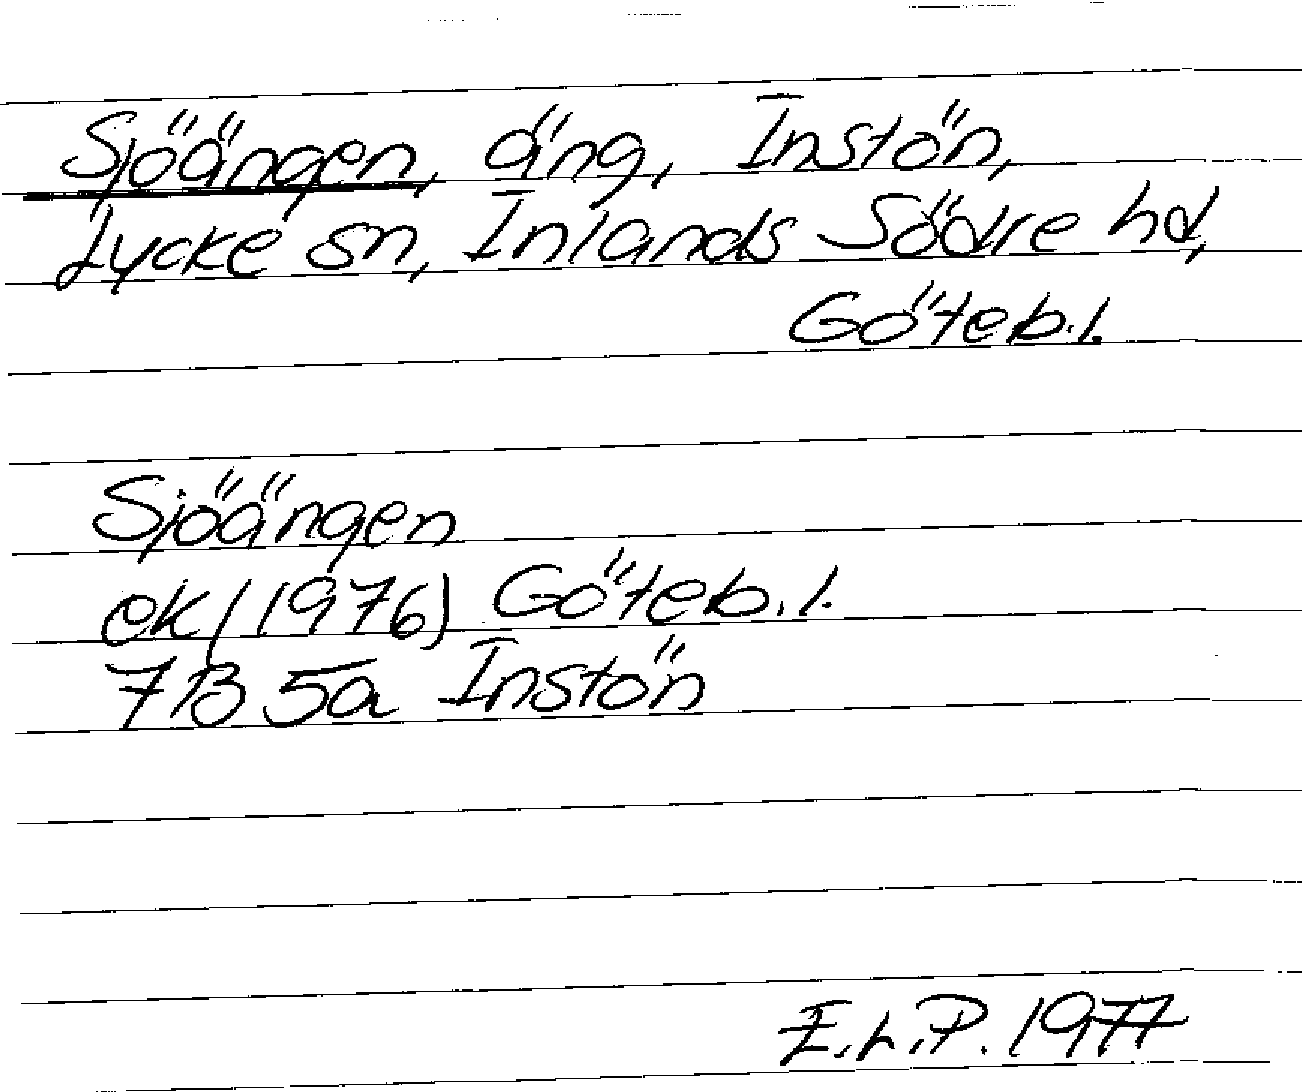 Sjöängen, äng, Instön,
Lycke sn, Inlands Södre hd,
Göteb.l.
Sjöängen
ek (1976) Göteb.l.
7B 5a Instön
E.L.P. 1977